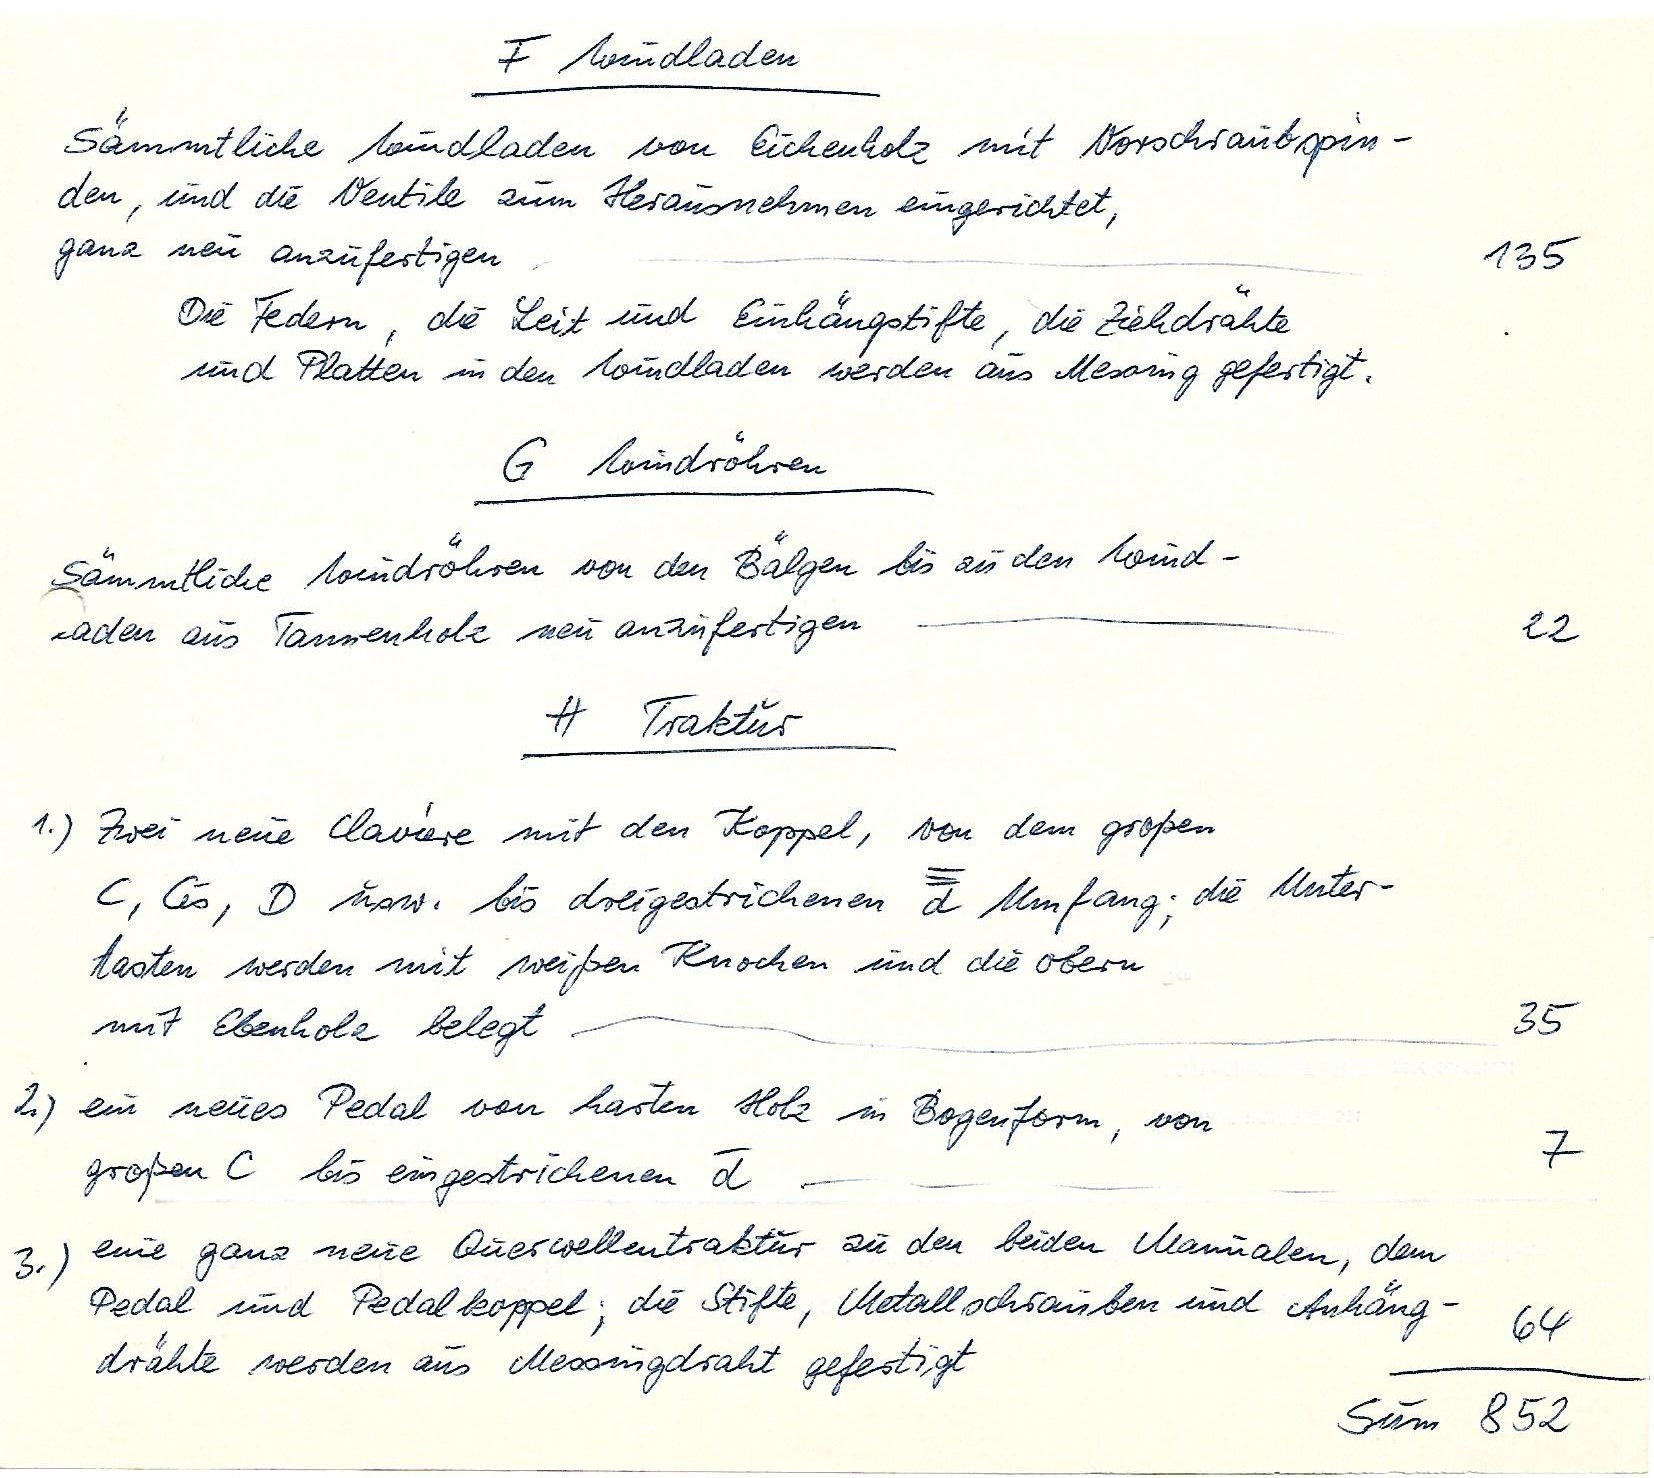 F Windladen
Sämmtliche Windladen von Eichenholz mit Vorschraubspin-
den, und die Ventile zum Herausnehmen eingerichtet,
ganz neu anzufertigen 135
Die Federn, die Leit und Einhängstifte, die Ziehdrähte
und Platten in den Windladen werden aus Messing gefertigt.
G Windröhren
Sämmtliche Windröhren von den Bälgen bis zu den Wind-
laden aus Tannenholz neu anzufertigen 22
H Traktur
1.) Zwei neue Claviere mit den Koppel, von dem großen
C, Cis, D usw. bis dreigestrichenen d̿̅ Umfang; die Unter-
tasten werden mit weißen Knochen und die obern
mit Ebenholz belegt 35
2.) ein neues Pedal von harten Holz in Bogenform, von
großen C bis eingestrichenen d̅ 7
3.) eine ganz neue Querwellentraktur zu den beiden Manualen, dem
Pedal und Pedalkoppel; die Stifte, Metallschrauben und Anhäng-
drähte werden aus Messingdraht gefertigt 64
Sum 852